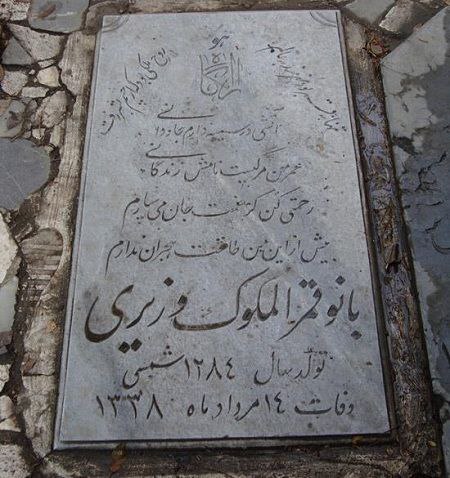 هو
آرامگاه
آتشی در سینه دارم جاودانی
عمر من مرگیست نامش زندگانی
رحمتی کن کز غمت جان می سپارم
بیش از این من طاقت هجران ندارم
بانو قمر الملوک وزیری
تولد سال ۱۲۸۴ شمسی
وفات ۱۴ مرداد ماه ۱۳۳۸